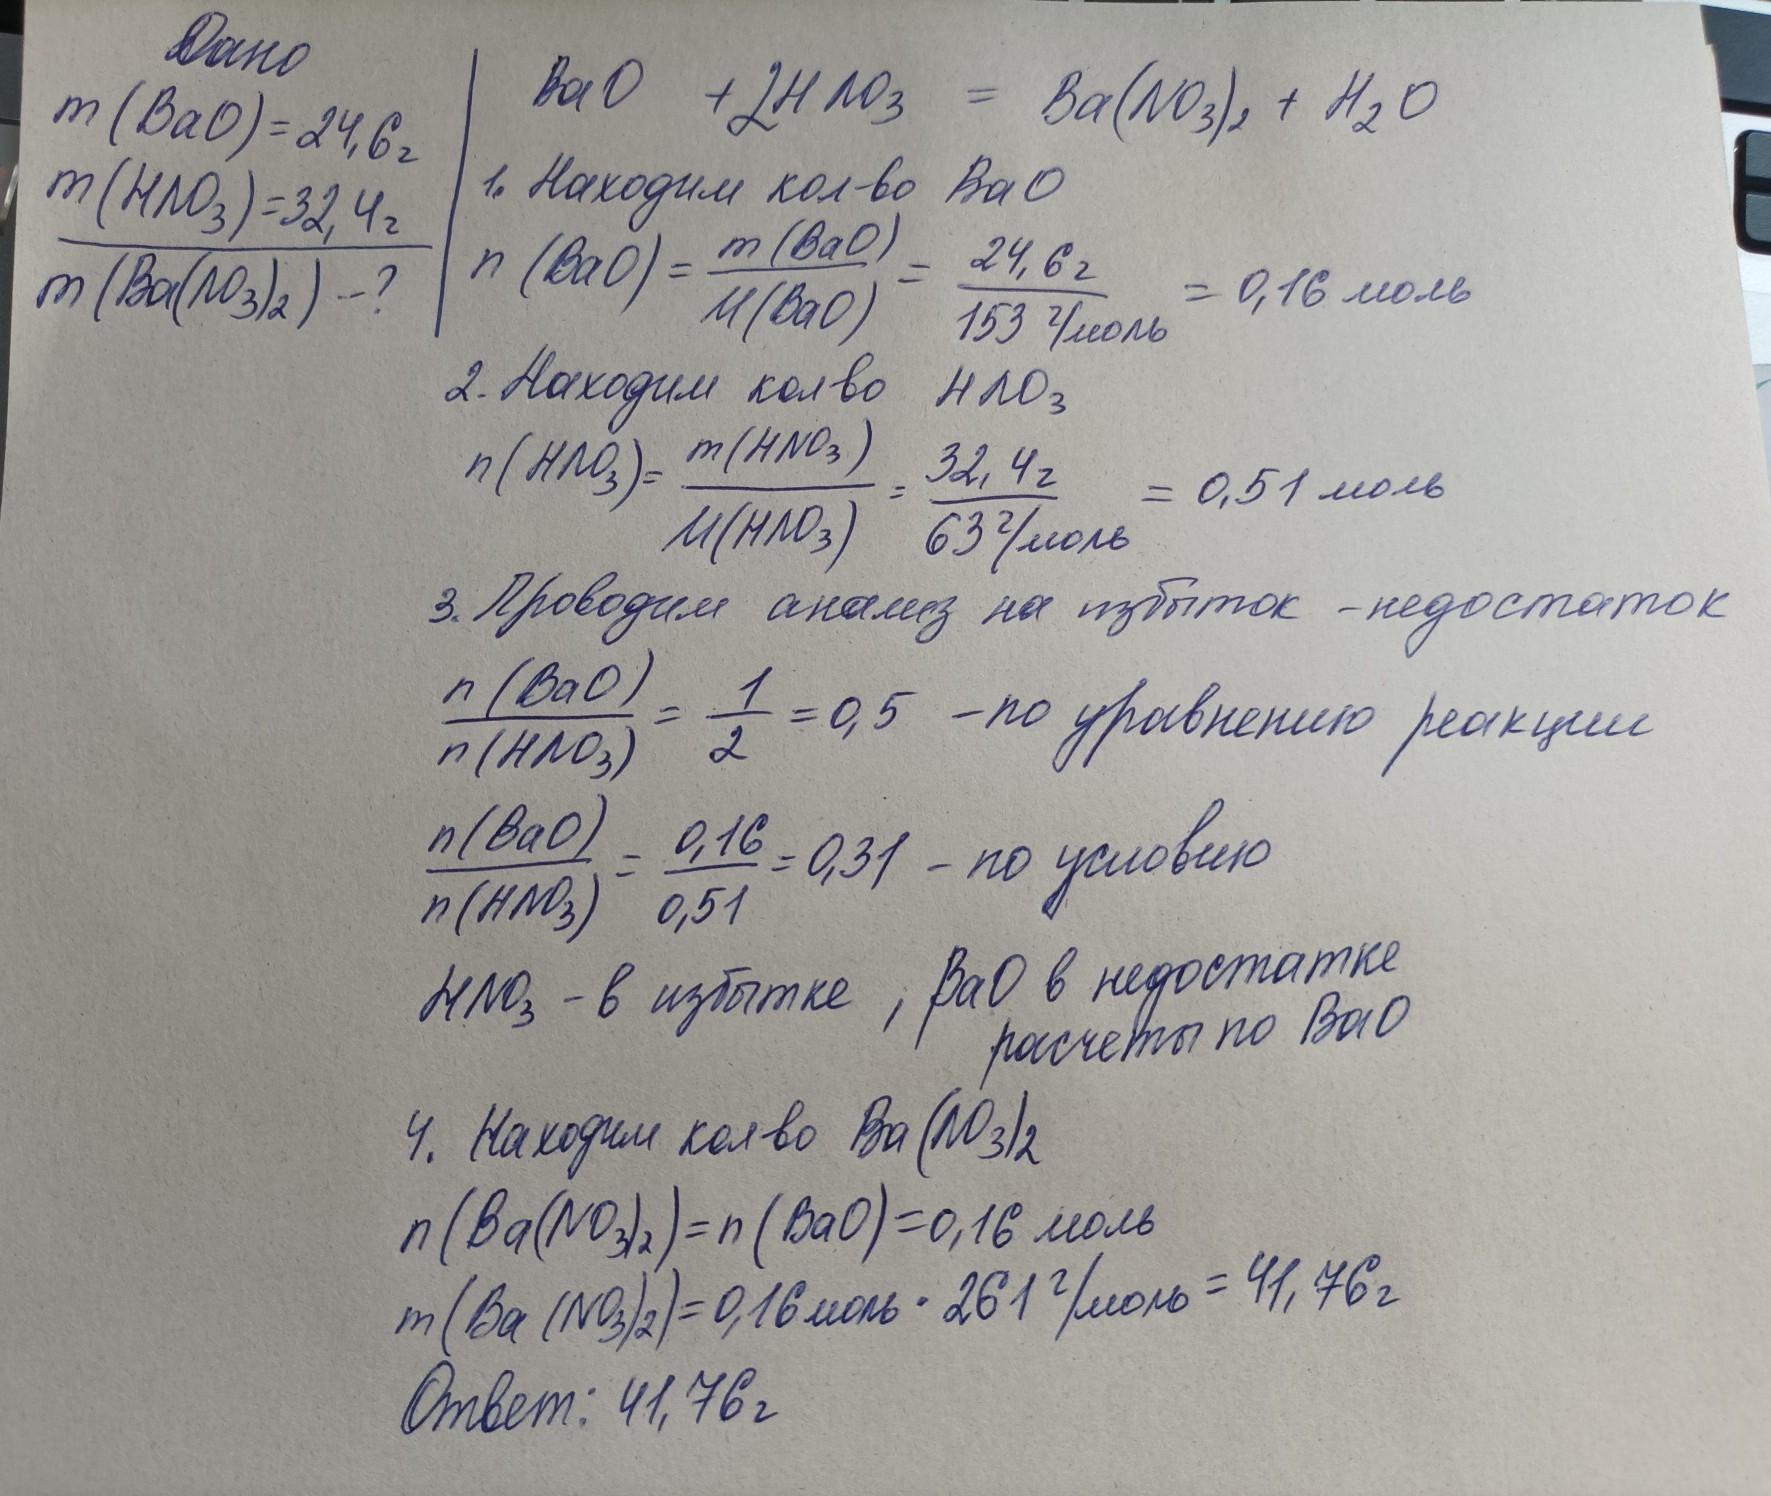 Дано
m(BaO)=24,6г
m(HNO3)=32,4г
m(Ba(NO3)2) -?
BaO + 2HNO3 = Ba(NO3)2 + H2O
1. Находим кол-во BaO
n(BaO) = m(BaO)/M(BaO) = 24,6г/153 г/моль = 0,16 моль
2. Находим колво HNO3
n(HNO3) = m(HNO3)/M(HNO3) = 32,4г/63 г/моль = 0,51 моль
3. Проводим анализ на избыток - недостаток
n(BaO)/n(HNO3) = 1/2 = 0,5 - по уравнению реакции
n(BaO)/n(HNO3) = 0,16/0,51 = 0,31 - по условию
HNO3 - в избытке, BaO в недостатке
расчеты по BaO
4. Находим колво Ba(NO3)2
n(Ba(NO3)2) = n(BaO) = 0,16 моль
m(Ba(NO3)2) = 0,16 моль · 261 г/моль = 41,76г
Ответ: 41,76г